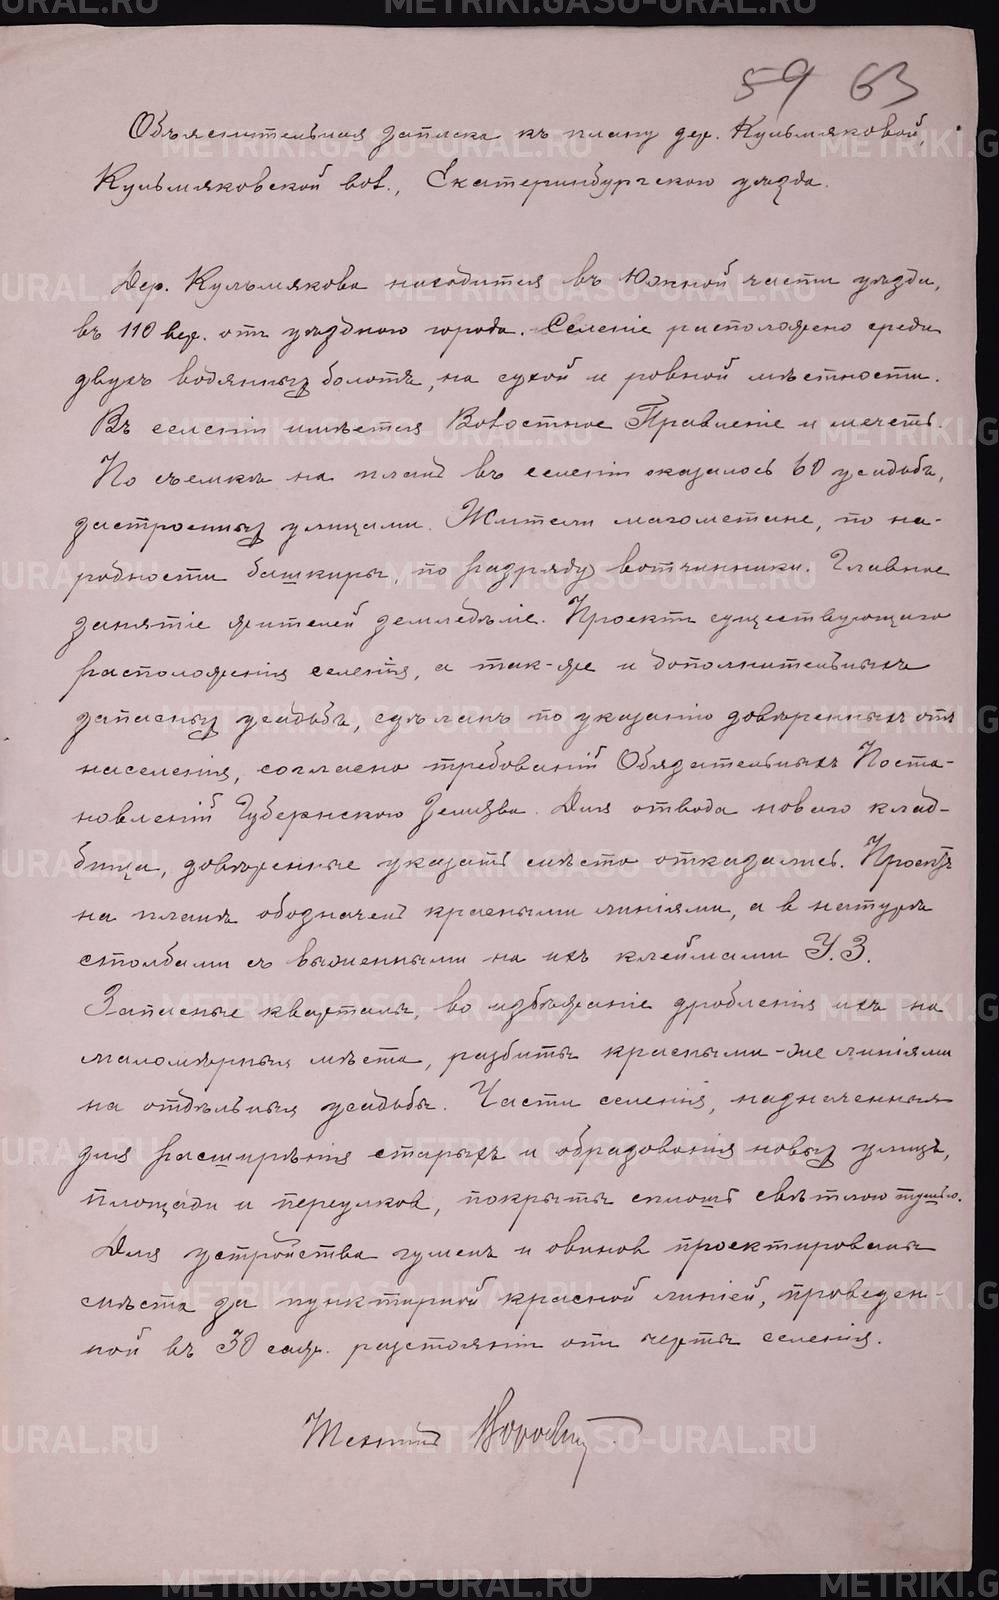 59 63
Объяснительная записка къ плану дер. Кульмяковой,
Кульмяковской вол., Екатеринбургскаго уѣзда.
Дер. Кульмякова находится въ Южной части уѣзда,
въ 110 вер. отъ уѣзднаго города. Селеніе расположено среди
двухъ водяныхъ болотъ, на сухой и ровной мѣстности.
Въ селеніи имѣется Волостное Правленіе и мечеть.
По съемкѣ на планъ въ селеніи оказалось 60 усадьбъ,
застроенныхъ улицами. Жители магометане, по на-
родности башкиры, по разряду вотчинники. Главное
занятіе жителей земледѣліе. Проектъ существующаго
расположенія селенія, а так-же и дополнительныхъ
запасныхъ усадьбъ, сдѣланъ по указанію довѣренныхъ отъ
населенія, согласно требованій Обязательныхъ Поста-
новленій Губернскаго Земства. Для отвода новаго клад-
бища, довѣренные указать мѣсто отказались. Проектъ
на планѣ обозначенъ красными линіями, а в натурѣ
столбами съ выжженными на ихъ клеймами У.З.
Запасные кварталы, во избѣжаніе дробленія ихъ на
маломѣрныя мѣста, разбиты красными-же линіями
на отдѣльныя усадьбы. Части селенія, назначенныя
для расширѣнія старыхъ и образованія новыхъ улицъ,
площади и переулков, покрыты сплошь свѣтлою тушью.
Для устройства гуменъ и овинов проектированы
мѣста за пунктирной красной линіей, проведен-
ной въ 30 саж. разстояніи отъ черты селенія.
Техникъ
METRIKI.GASO-URAL.RU